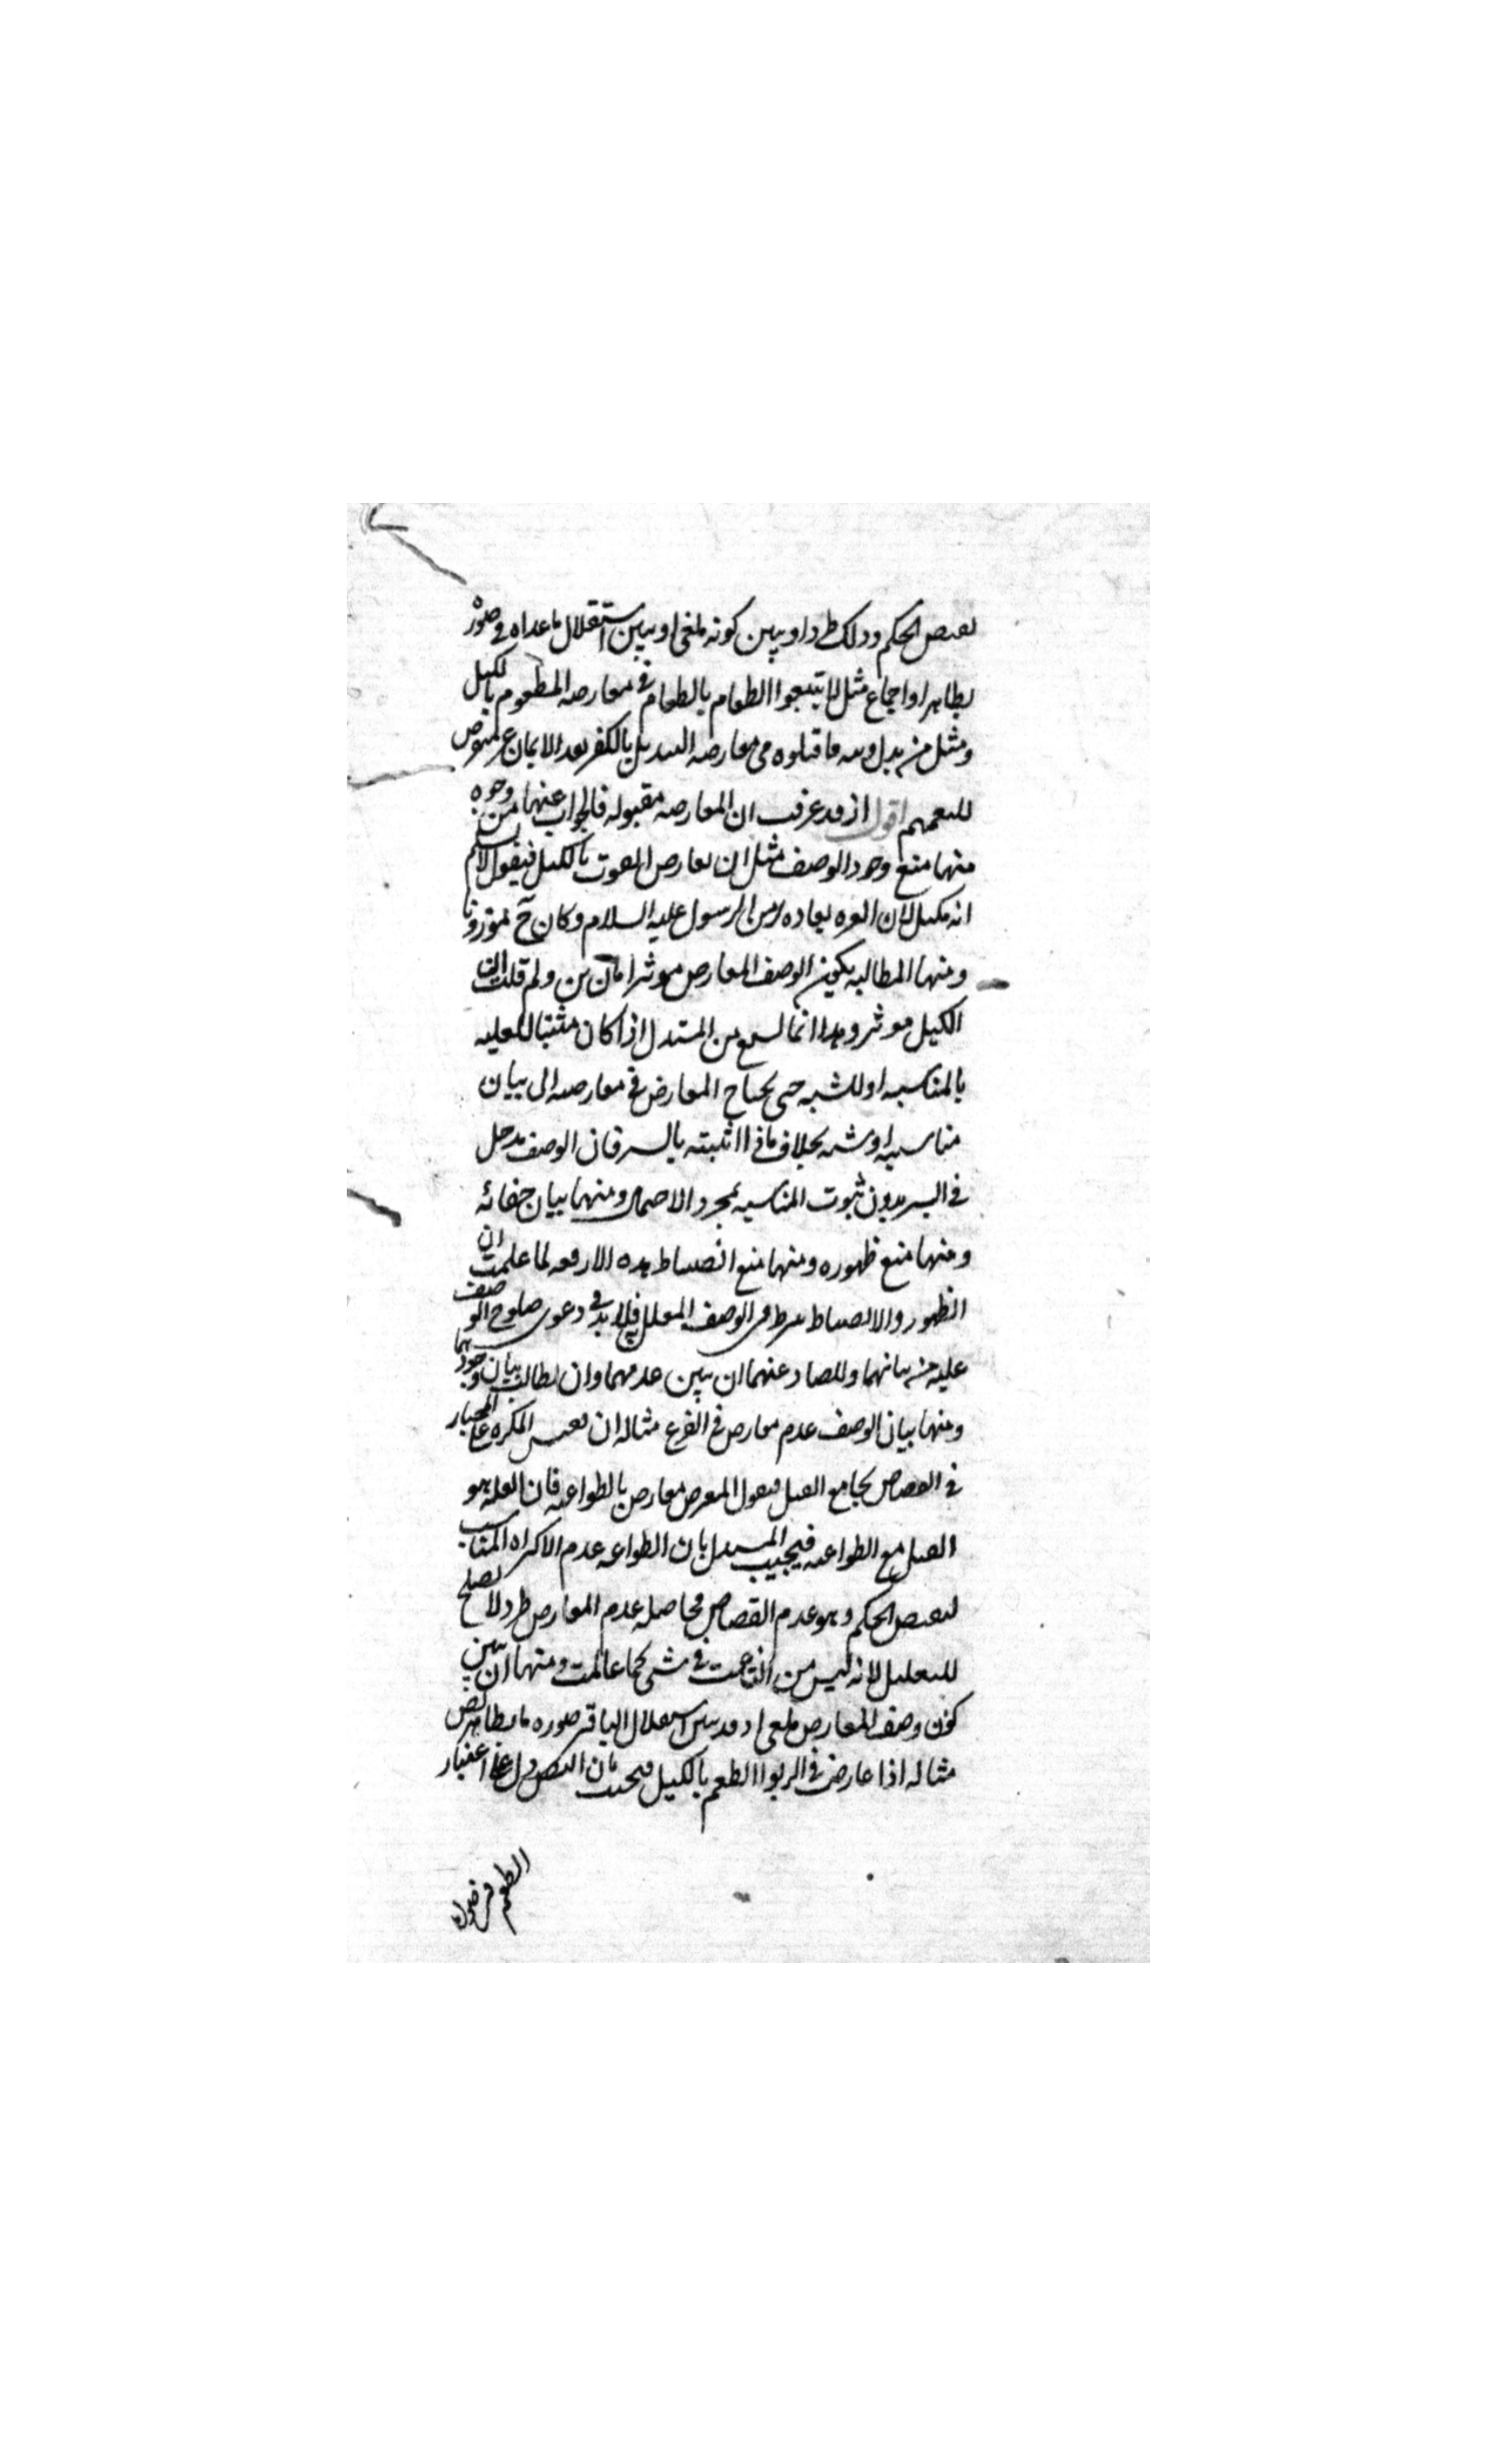 لنقيض الحكم وذلك طرد او يبين كونه ملغى او يبين استقلال ما عداه في صورة
بظاهر او اجماع مثل لا تبيعوا الطعام بالطعام في معارضة المطعوم بالكيل
ومثل من بدل دينه فاقتلوه في معارضة التبديل بالكفر بعد الايمان غير متعرض
للتعميم اقول اذ قد عرفت ان المعارضة مقبولة فالجواب عنها من وجوه
منها منع وجود الوصف مثل ان يعارض القوت بالكيل فيقول لا نسلم
انه مكيل لان العبرة بعادة زمن الرسول عليه السلام وكان ح موزونا
ومنها المطالبة بكون الوصف المعارض مؤثرا بان ولم قلت ان
الكيل مؤثر وهذا انما يسمع من المستدل اذا كان مثبتا للعلية
بالمناسبة او للشبه حتى يحتاج المعارض في معارضته الى بيان
مناسبة او شبه بخلاف ما اذا اثبته بالسبر فان الوصف يدخل
في السبر بدون ثبوت المناسبة بمجرد الاحتمال ومنها بيان خفائه
ومنها منع ظهوره ومنها منع انضباطه هذه الاربعة لما علمت ان
الظهور والانضباط شرط في الوصف المعلل به فلا بد في دعوى صلوح الوصف
عليه من بيانهما وللصاد عنهما ان يبين عدمهما وان يطالب ببيان وجودهما
ومنها بيان الوصف عدم معارض في الفرع مثاله ان يقيس المكره على المختار
في القصاص بجامع القتل فيقول المعترض معارض بالطواعية فان العلة هو
القتل مع الطواعية فيجيب المستدل بان الطواعية عدم الاكراه المناسب
لنقيض الحكم وهو عدم القصاص فحاصله عدم المعارض طرد لا يصلح
للتعليل لانه ليس من الباعث في شيء كما علمت ومنها ان يبين
كون وصف المعارض ملغى اذ قد تبين استقلال الباقي في صورة ما بظاهر نص
مثاله اذا عارض في الربوا الطعم بالكيل فيجيب بان النص دل على اعتبار
الطعم في صورة